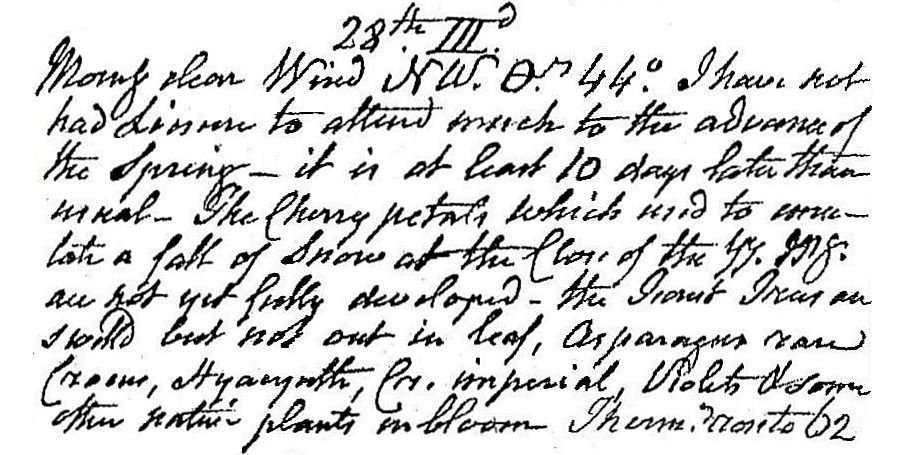 28th. IIId.
Morng clear Wind NW. 44°. I have not
had Leisure to attend much to the advance of
the Spring – it is at least 10 days later than
usual – The Cherry petals which used to emu–
late a fall of Snow at the Close of the Yy. Mg.
are not yet fully developed – the Forest Trees are
swelld but not out in leaf, Asparagus
Crocus, Hyacynth, Cr. imperial, Violets & some
other native plants in bloom Therm.r rose to 62